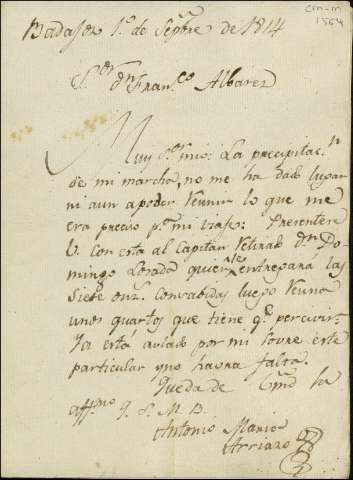 Cm-m
1564
Badajoz 1º de Sepbre de 1814
S.or dn Fran.co Albarez
Muy S.or mio: La precipitac.n
de mi marcha, no me ha dado lugar
ni aun a poder reunir lo que me
era preciso p.a mi viaje: Presentese
V. con esta al Capitan Retirado dn Do-
mingo Losada quien le entregará las
siete onz. convabidas luego reuna
unos quartos que tiene q.e percivir.
Ya esta avisado por mi sovre este
particular y no havra falta.
Queda de Vmd su
aff.mo Q. S. M. B.
Antonio Maria
Arriazo